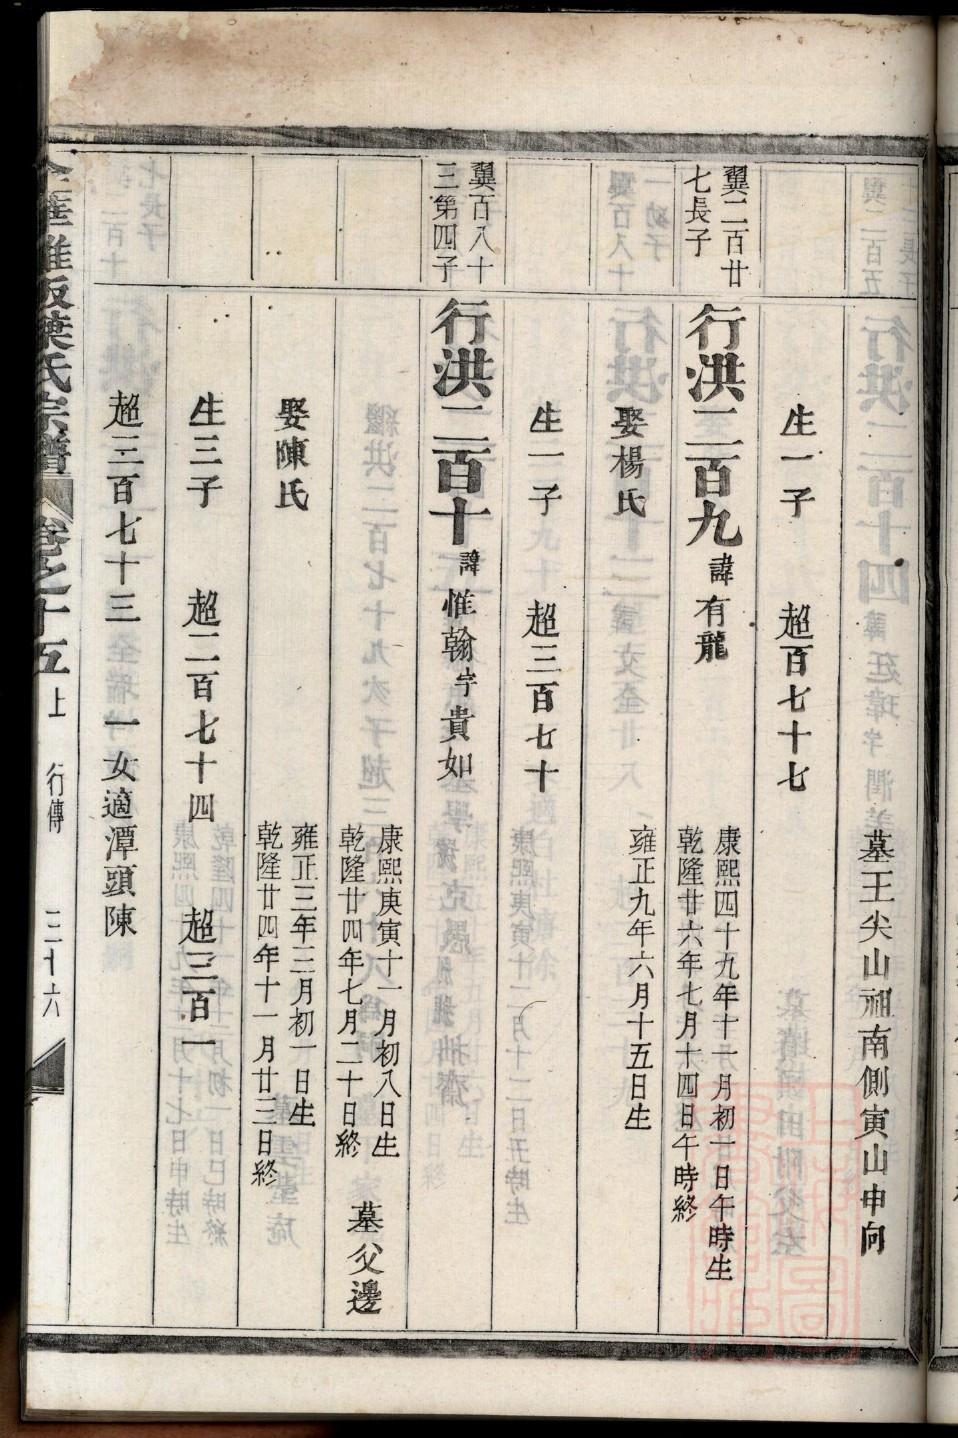 墓王尖山祖南側寅山申向
生一子　超百七十七
翼二百廿
七長子
行洪二百九
諱有龍
康熙四十九年十一月初一日午時生
乾隆廿六年七月十四日午時終
娶楊氏
雍正九年六月十五日生
生一子　超三百七十
翼百八十
三第四子
行洪二百十
諱惟翰字貴如
康熙庚寅十一月初八日生
乾隆廿四年七月二十日終
墓父邊
娶陳氏
雍正三年三月初一日生
乾隆廿四年十一月廿三日終
生三子　超二百七十四　超三百一
超三百七十三　一女適潭頭陳
葉氏宗譜　卷之十五上　行傳　三十六